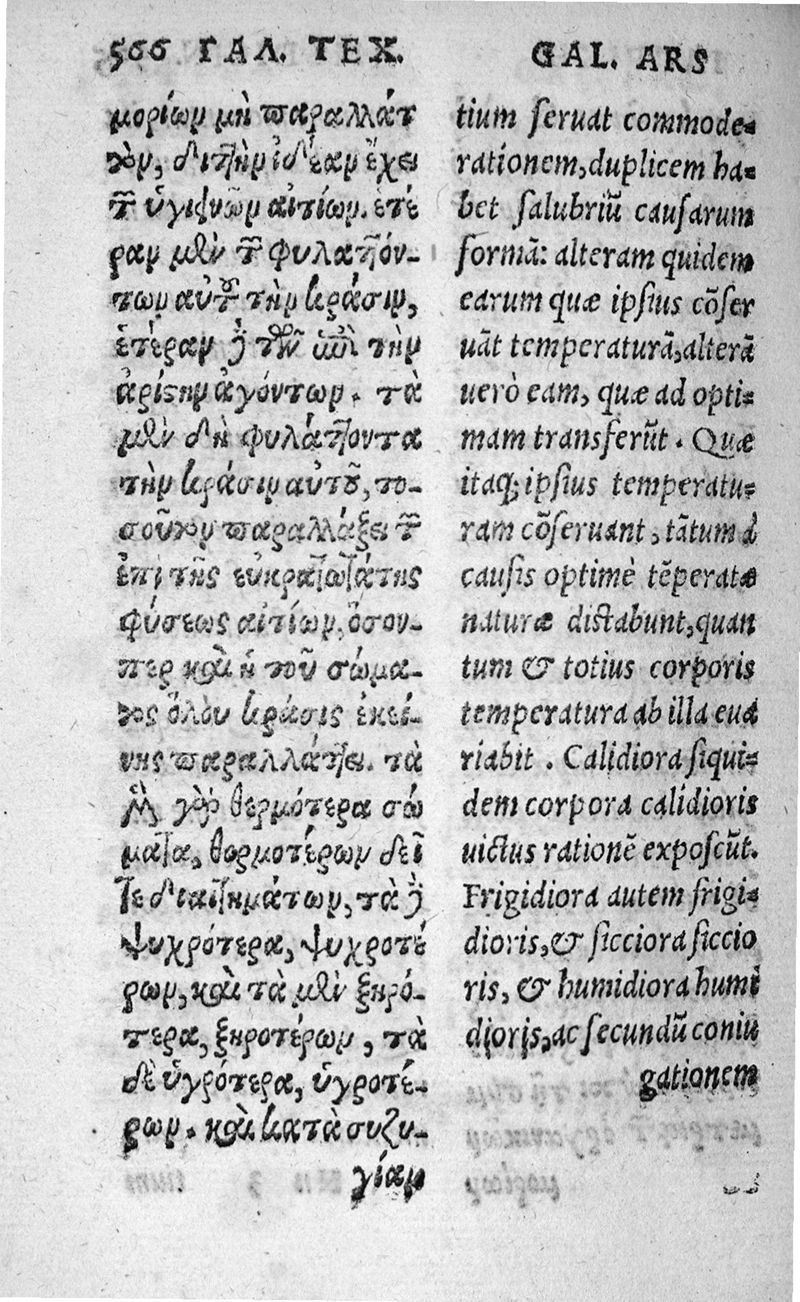 566 ΓΑΛ. ΤΕΧ.
μορίων μὴ παραλλάτ
τον, διττὴν ἰδέαν ἔχει
τῶν ὑγιεινῶν αἰτίων. ἑτέ
ραν μὲν τῶν φυλαττόν-
των αὐτῶν τὴν κρᾶσιν,
ἑτέραν δὲ τῶν ἐπὶ τὴν
ἀρίστην ἀγόντων. τὰ
μὲν δὴ φυλάττοντα
τὴν κρᾶσιν αὐτοῦ, το-
σοῦτον παραλλάξει τῶν
ἐπὶ τῆς εὐκρατοτάτης
φύσεως αἰτίων, ὅσον-
περ καὶ ἡ τοῦ σώμα-
τος ὅλου κρᾶσις ἐκεί-
νης παραλλάττει. τὰ
μὲν γὰρ θερμότερα σώ
ματα, θερμοτέρων δεῖ
ται διαιτημάτων, τὰ δὲ
ψυχρότερα, ψυχροτέ
ρων, καὶ τὰ μὲν ξηρό-
τερα, ξηροτέρων, τὰ
δὲ ὑγρότερα, ὑγροτέ-
ρων. καὶ κατὰ συζυ-
γίαν
GAL. ARS
tium seruat commode-
rationem, duplicem ha-
bet salubriũ causarum
formã: alteram quidem
earum quæ ipsius cõser
uãt temperaturã, alterã
uerò eam, quæ ad opti-
mam transferũt. Quæ
itaq; ipsius temperatu-
ram cõseruant, tãtum à
causis optimè tẽperatæ
naturæ distabunt, quan
tum & totius corporis
temperatura ab illa eua
riabit. Calidiora siqui-
dem corpora calidioris
uictus rationẽ exposcũt.
Frigidiora autem frigi-
dioris, & sicciora siccio
ris, & humidiora humi
dioris, ac secundũ coniu
gationem